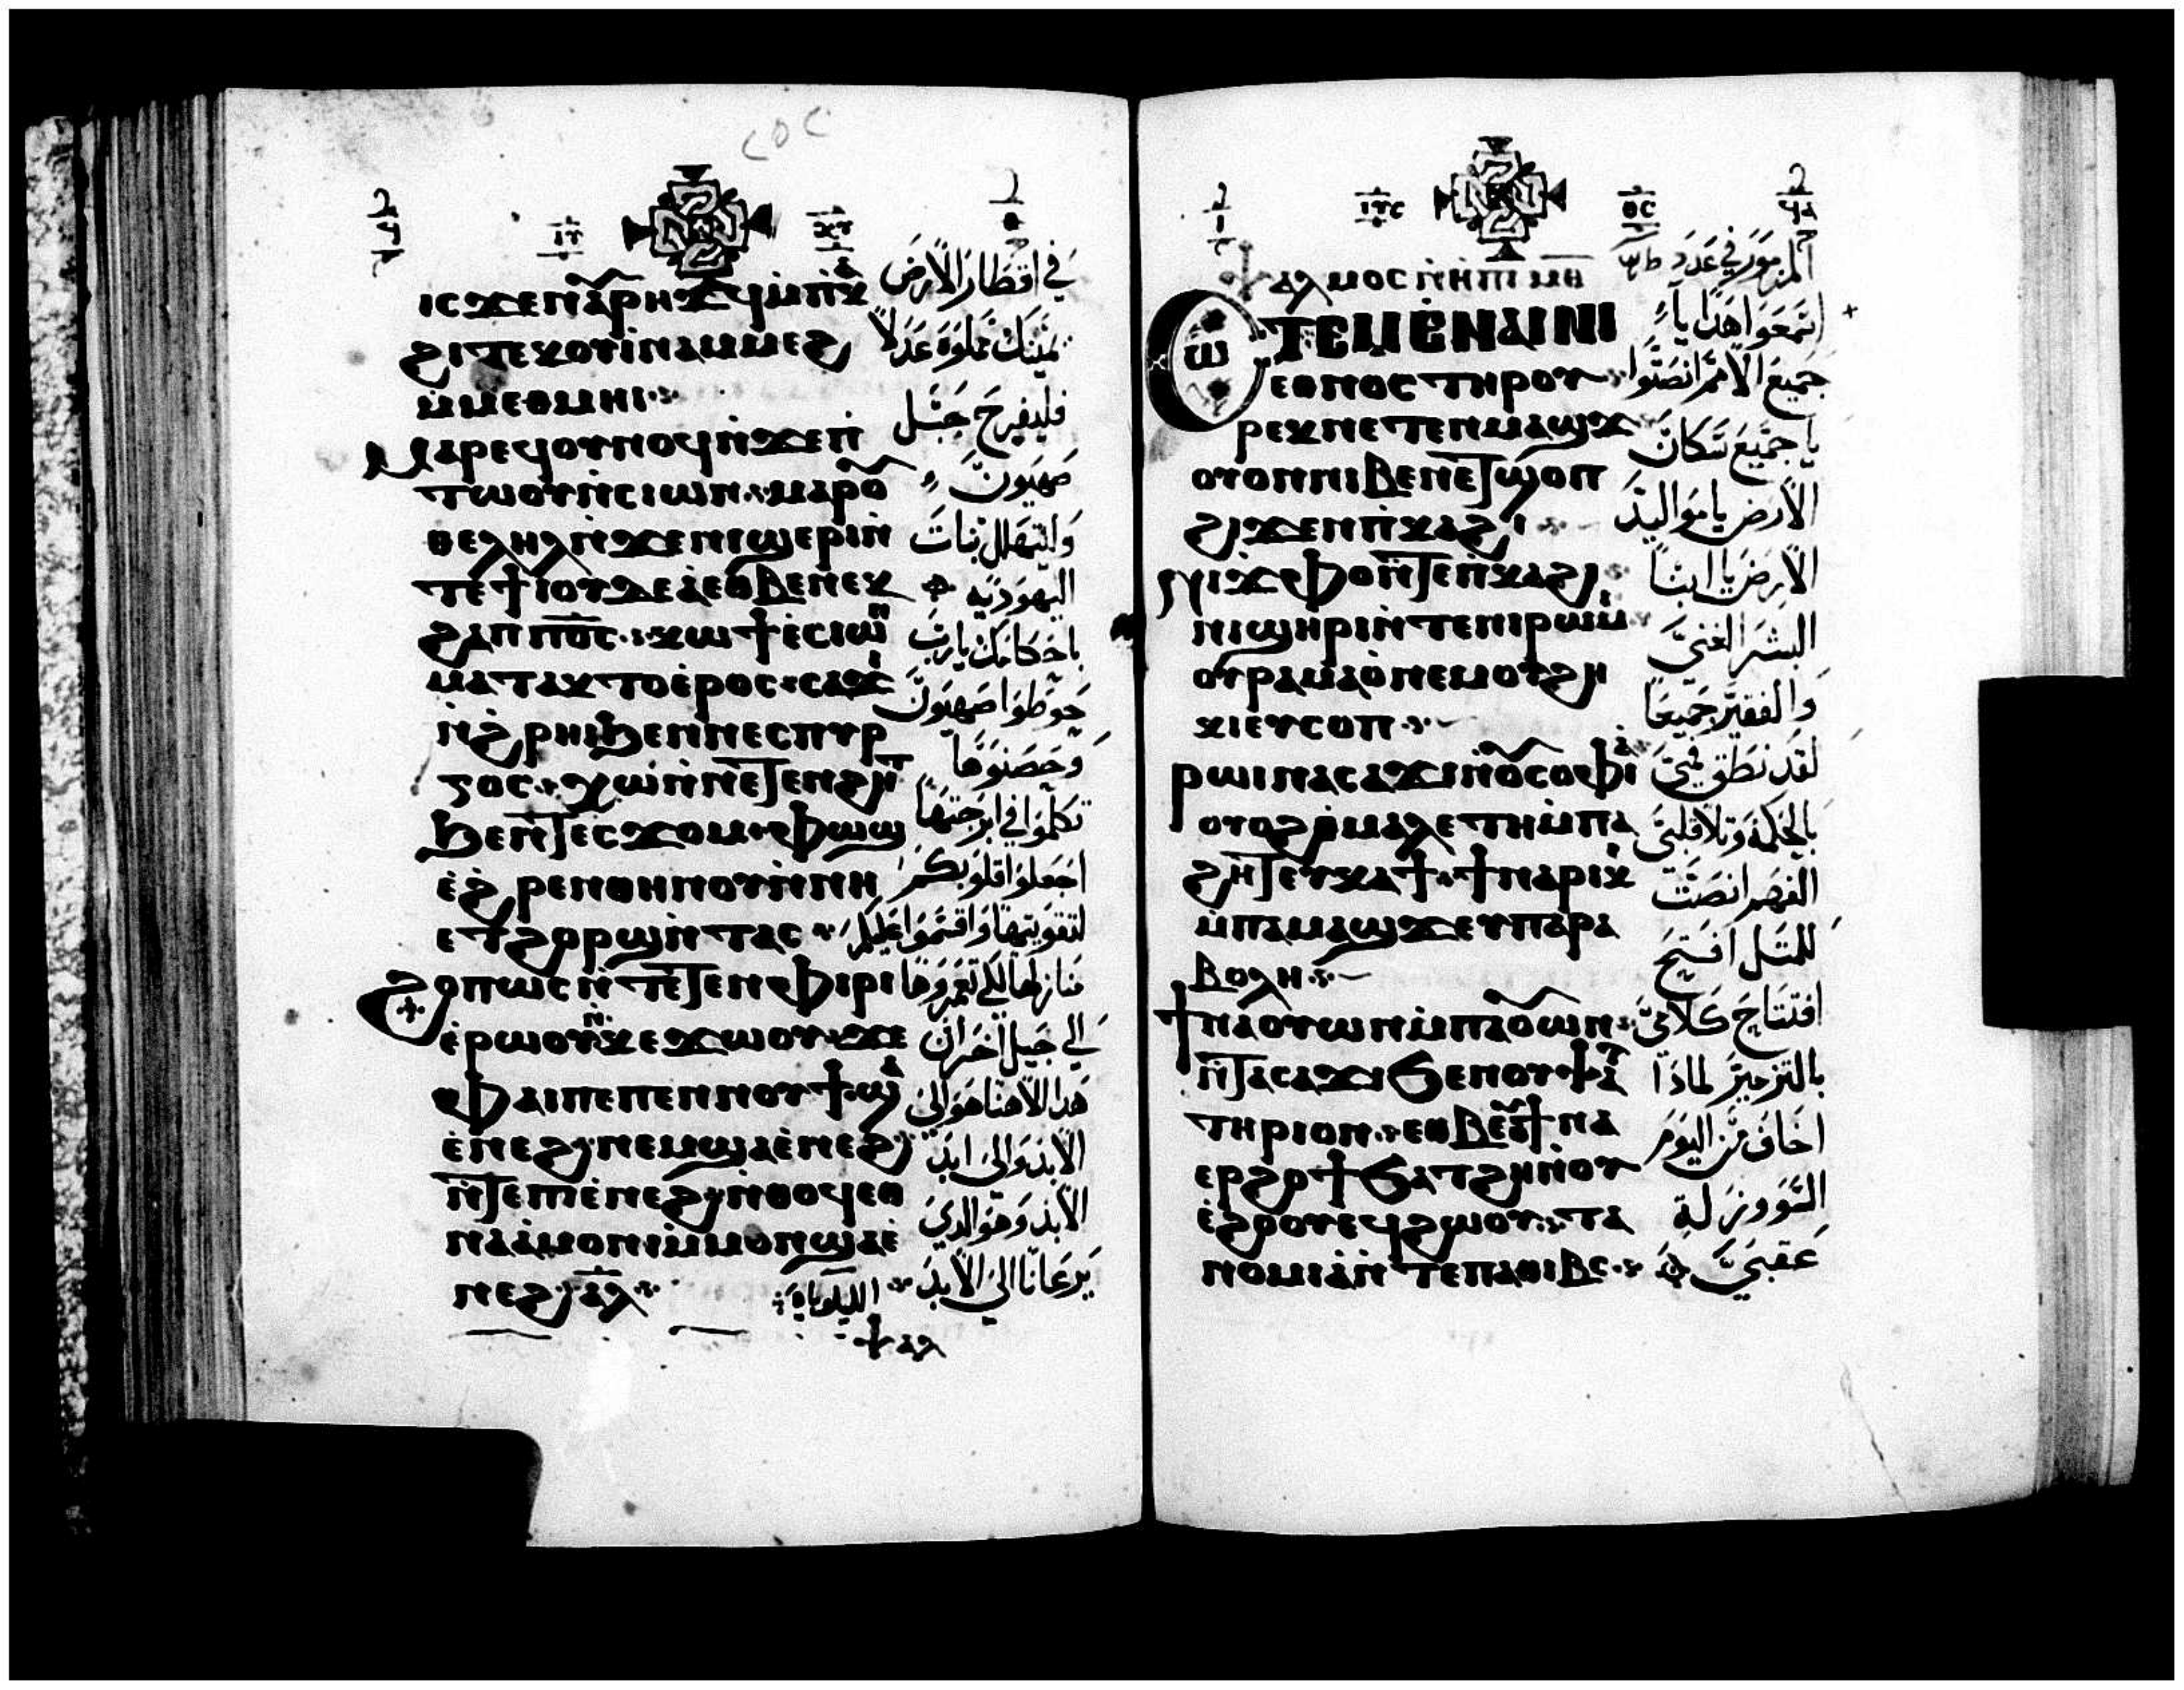 ⲓⲥϫⲉⲛⲁⲣⲏϫϥⲙⲡⲕⲁ
ϩⲓⲧⲉⲕⲟⲩⲓⲛⲁⲙⲙⲉϩ
ⲙⲙⲉⲑⲙⲏⲓ
ⲙⲁⲣⲉϥⲟⲩⲛⲟϥⲛϫⲉⲡ
ⲧⲱⲟⲩⲛⲥⲓⲱⲛ ⲙⲁⲣⲟ
ⲑⲉⲗⲏⲗⲛϫⲉⲛⲓϣⲉⲣⲓⲛ
ⲧⲉϯⲓⲟⲩⲇⲉⲁⲉⲑⲃⲉⲛⲉⲕ
ϩⲁⲡ ⲡⲟⲥ ⲕⲱϯⲉⲥⲓⲱⲛ
ⲙⲁⲧⲁⲕⲧⲟⲉⲣⲟⲥ ⲥⲁϫⲓ
ⲛϩⲣⲏⲓϧⲉⲛⲛⲉⲥⲡⲩⲣ
ⲅⲟⲥ ⲭⲱⲛⲛⲉⲧⲉⲛϩⲏⲧ
ϧⲉⲛⲧⲉⲥϫⲟⲙ ⲫⲱϣ
ⲉϩⲣⲉⲛⲑⲏⲛⲟⲩⲛⲛⲏ
ⲉⲧϩⲟⲣϣⲛⲧⲁⲥ
ϩⲟⲡⲱⲥⲛⲧⲉⲧⲉⲛⲫⲓⲣⲓ
ⲉⲣⲱⲟⲩⲛⲕⲉϫⲱⲟⲩ ϫⲉ
ⲫⲁⲓⲡⲉⲡⲉⲛⲛⲟⲩϯ ϣⲁ
ⲉⲛⲉϩ ⲛⲉⲙϣⲁⲉⲛⲉϩ
ⲛⲧⲉⲡⲓⲉⲛⲉϩ ⲛⲑⲟϥⲉⲑ
ⲛⲁⲁⲙⲟⲛⲓⲙⲙⲟⲛϣⲁⲉ
ⲛⲉϩ ⲁⲗ
في اقطار الارض
يمينك مملوة عدلا
فليفرح جبل
صهيون
ولتتهلل بنات
اليهودية
باحكامك يارب
حوطوا صهيون
وحصنوها
تكلموا في ابرجتها
اجعلوا قلوبكم
لتقويتها واقتسموا
منازلها لكي تعمروها
الي جيل اخر ان
هذا الاهنا هو الي
الابد والي ابد
الابد وهو الذي
يرعانا الي الابد الليلويا
ⲯⲁⲗⲙⲟⲥ ⲙⲏ
ⲥⲱⲧⲉⲙⲉⲛⲁⲓⲛⲓ
ⲉⲑⲛⲟⲥ ⲧⲏⲣⲟⲩ
ⲣⲉⲕⲛⲉⲧⲉⲛⲙⲁϣϫ
ⲟⲩⲟⲛⲛⲓⲃⲉⲛⲉⲧϣⲟⲡ
ϩⲓϫⲉⲛⲡⲕⲁϩⲓ
ⲛⲓϫⲫⲟⲛⲧⲉⲡⲕⲁϩⲓ
ⲛⲓϣⲏⲣⲓⲛⲧⲉⲛⲓⲣⲱⲙⲓ
ⲟⲩⲣⲁⲙⲁⲟⲛⲉⲙⲟⲩϩⲏ
ⲕⲓⲉⲩⲥⲟⲡ
ⲣⲱⲓⲛⲁⲥⲁϫⲓⲛⲟⲥⲟⲫⲓⲁ
ⲟⲩⲟϩ ⲙⲁⲗⲉⲧⲏⲙⲡⲁ
ϩⲏⲧⲉⲩⲕⲁϯ ϯⲛⲁⲣⲓⲕⲓ
ⲙⲡⲁⲙⲁϣϫⲉⲩⲡⲁⲣⲁ
ⲃⲟⲗⲏ
ϯⲛⲁⲟⲩⲱⲛⲙⲡⲁⲟⲩⲱⲛ
ⲛⲧⲁⲥⲁϫⲓϧⲉⲛⲟⲩⲯⲁⲗ
ⲧⲏⲣⲓⲟⲛ ⲉⲑⲃⲉⲟⲩϯⲛⲁ
ⲉⲣϩⲟϯϧⲁⲧϩⲏⲛⲟⲩ
ⲉϩⲟⲟⲩⲉϥϩⲱⲟⲩ ⲧⲁ
ⲛⲟⲙⲓⲁⲛⲧⲉⲡⲁⲑⲓⲃⲥ
المزمور في عدد
اسمعوا هذا يا
جميع الامم انصتوا
يا جميع سكان
الارض يا مواليد
الارض يا ابنا
البشر الغني
والفقير جميعا
لقد نطق فمي
بالحكمة وتلا قلبي
الفهم انصت
للمثل افتح
افتتاح كلامي
بالتزمير لماذا
اخاف من اليوم
السوو زلة
عقبي